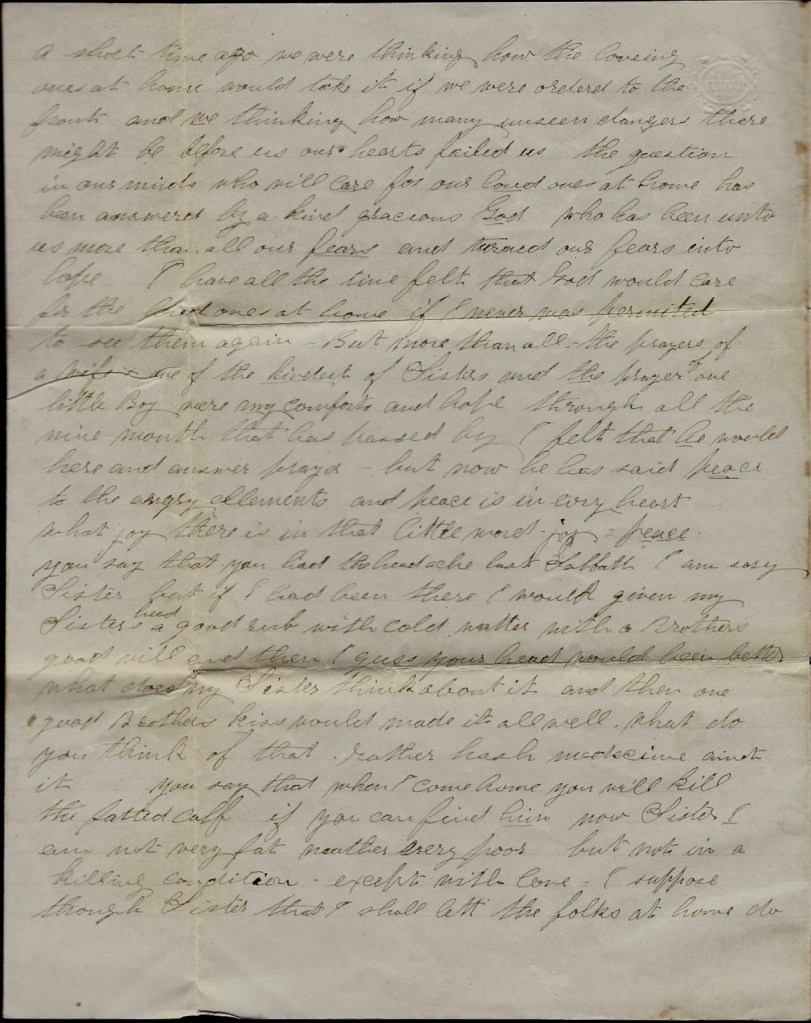 a short time ago we were thinking how the loveing
ones at home would take it if we were ordered to the
front and we thinking how many unseen dangers there
might be before us our hearts failed us the question
in our minds who will care for our loud ones at home has
been answered by a kind gracious God who has been unto
us more than all our fears and turned our fears into
hope I have all the time felt that God would care
for the loud ones at home if I never was permited
to see them again - But more than all - the prayers of
a wife & one of the kindest of Sisters and the prayer of one
little Boy were my comforts and hope through all the
nine month that has passed by I felt that he would
here and answer prayer - but now he has said peace
to the angry ellements and peace is in evry heart
what joy there is in that little word - joy = peace -
you say that you had the headache last Sabbath I am sory
Sister but if I had been there I would given my
Sisters head a good rub with cold watter with a Brothers
good will and then I guss your head would been better
what does my Sister think about it and then one
good Brothers kiss would made it all well. what do
you think of that. rather hash medecine aint
it you say that when I come home you will kill
the fatted calf if you can find him now Sister I
am not very fat neather very poor but not in a
killing condition - except with love - I suppose
through Sister that I shall lett the folks at home do